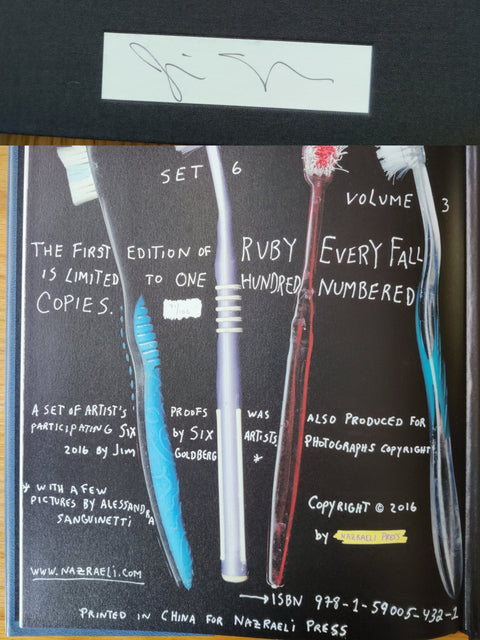 SET 6
VOLUME 3
THE FIRST EDITION OF RUBY EVERY FALL
IS LIMITED TO ONE HUNDRED NUMBERED
COPIES.
A SET OF ARTIST'S PROOFS WAS ALSO PRODUCED FOR
PARTICIPATING SIX by SIX ARTISTS. PHOTOGRAPHS COPYRIGHT
2016 by JIM GOLDBERG *
* WITH A FEW
PICTURES BY ALESSANDRA
SANGUINETTI
COPYRIGHT © 2016
by NAZRAELI PRESS
WWW.NAZRAELI.COM
→ISBN 978-1-59005-432-1
PRINTED IN CHINA FOR NAZRAELI PRESS